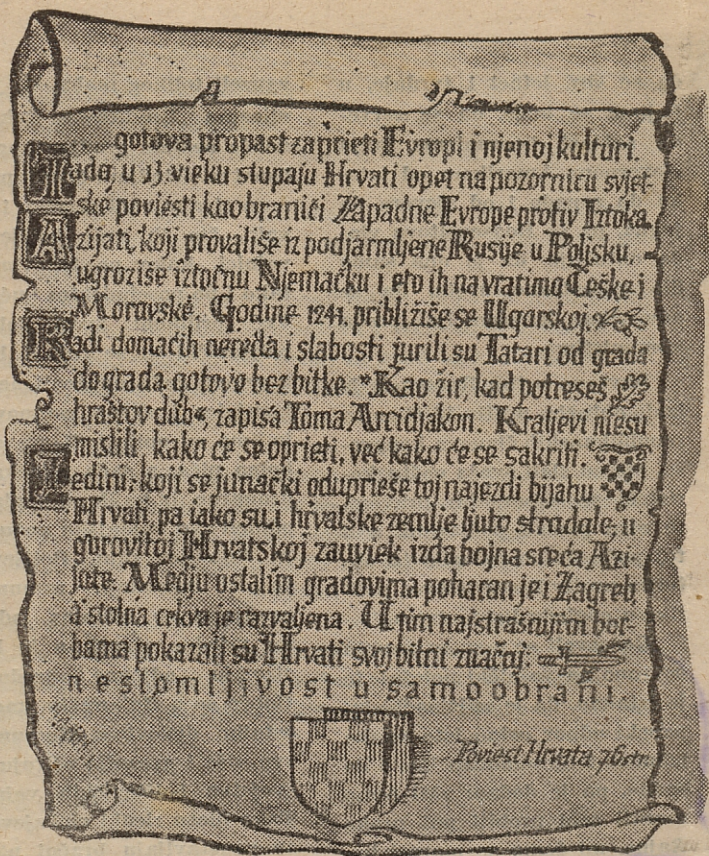 .... gotova propast zaprieti Evropi i njenoj kulturi.
Tada, u 13. vieku stupaju Hrvati opet na pozornicu svjet-
ske poviesti kao branići Zapadne Evrope protiv Iztoka.
Azijati, koji provališe iz podjarmljene Rusije u Poljsku, -
ugroziše iztočnu Njemačku i eto ih na vratima Češke i
Moravske. Godine 1241. približiše se Ugarskoj.
Radi domaćih nereda i slabosti jurili su Tatari od grada
do grada gotovo bez bitke. "Kao žir, kad potreseš
hrastov dub", zapisa Toma Arcidjakon. Kraljevi niesu
mislili, kako će se oprieti, već kako će se sakriti.
Jedini, koji se junački oduprieše toj najezdi bijahu
Hrvati, pa iako su i hrvatske zemlje ljuto stradale, u
gorovitoj Hrvatskoj zauviek izda bojna sreća Azi-
jate. Medju ostalim gradovima poharan je i Zagreb,
a stolna crkva je razvaljena. U tim najstrašnijim bor-
bama pokazali su Hrvati svoj bitni značaj:
neslomljivost u samoobrani.
Poviest Hrvata 76 str.